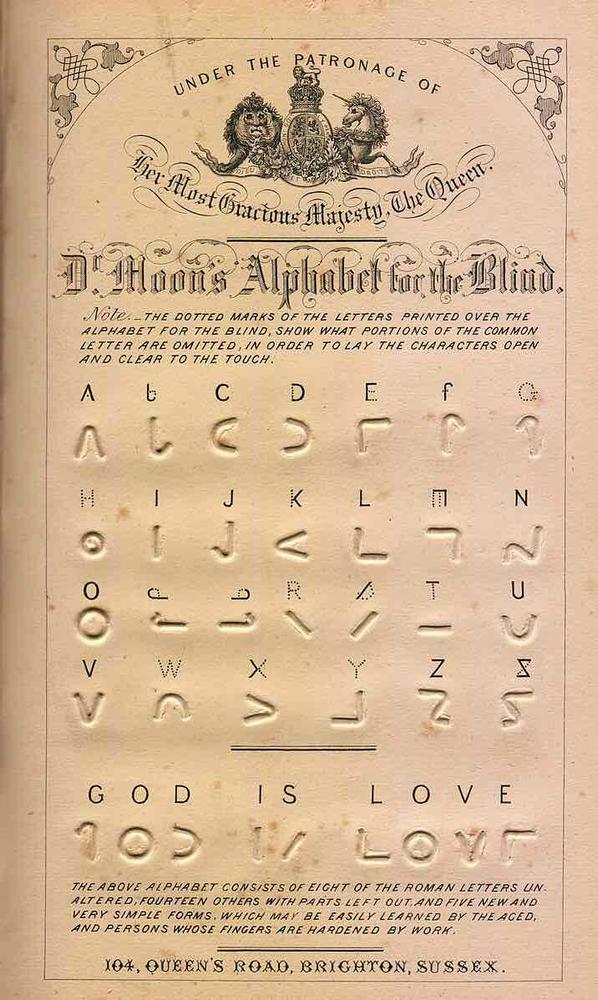 UNDER THE PATRONAGE OF
Her Most Gracious Majesty, The Queen.
Dr. Moon's Alphabet for the Blind.
Note._THE DOTTED MARKS OF THE LETTERS PRINTED OVER THE
ALPHABET FOR THE BLIND, SHOW WHAT PORTIONS OF THE COMMON
LETTER ARE OMITTED, IN ORDER TO LAY THE CHARACTERS OPEN
AND CLEAR TO THE TOUCH.
A b C D E f G
H I J K L M N
O P Q R S T U
V W X Y Z &
GOD IS LOVE
THE ABOVE ALPHABET CONSISTS OF EIGHT OF THE ROMAN LETTERS UN-
ALTERED, FOURTEEN OTHERS WITH PARTS LEFT OUT, AND FIVE NEW AND
VERY SIMPLE FORMS, WHICH MAY BE EASILY LEARNED BY THE AGED,
AND PERSONS WHOSE FINGERS ARE HARDENED BY WORK.
104, QUEEN'S ROAD, BRIGHTON, SUSSEX.